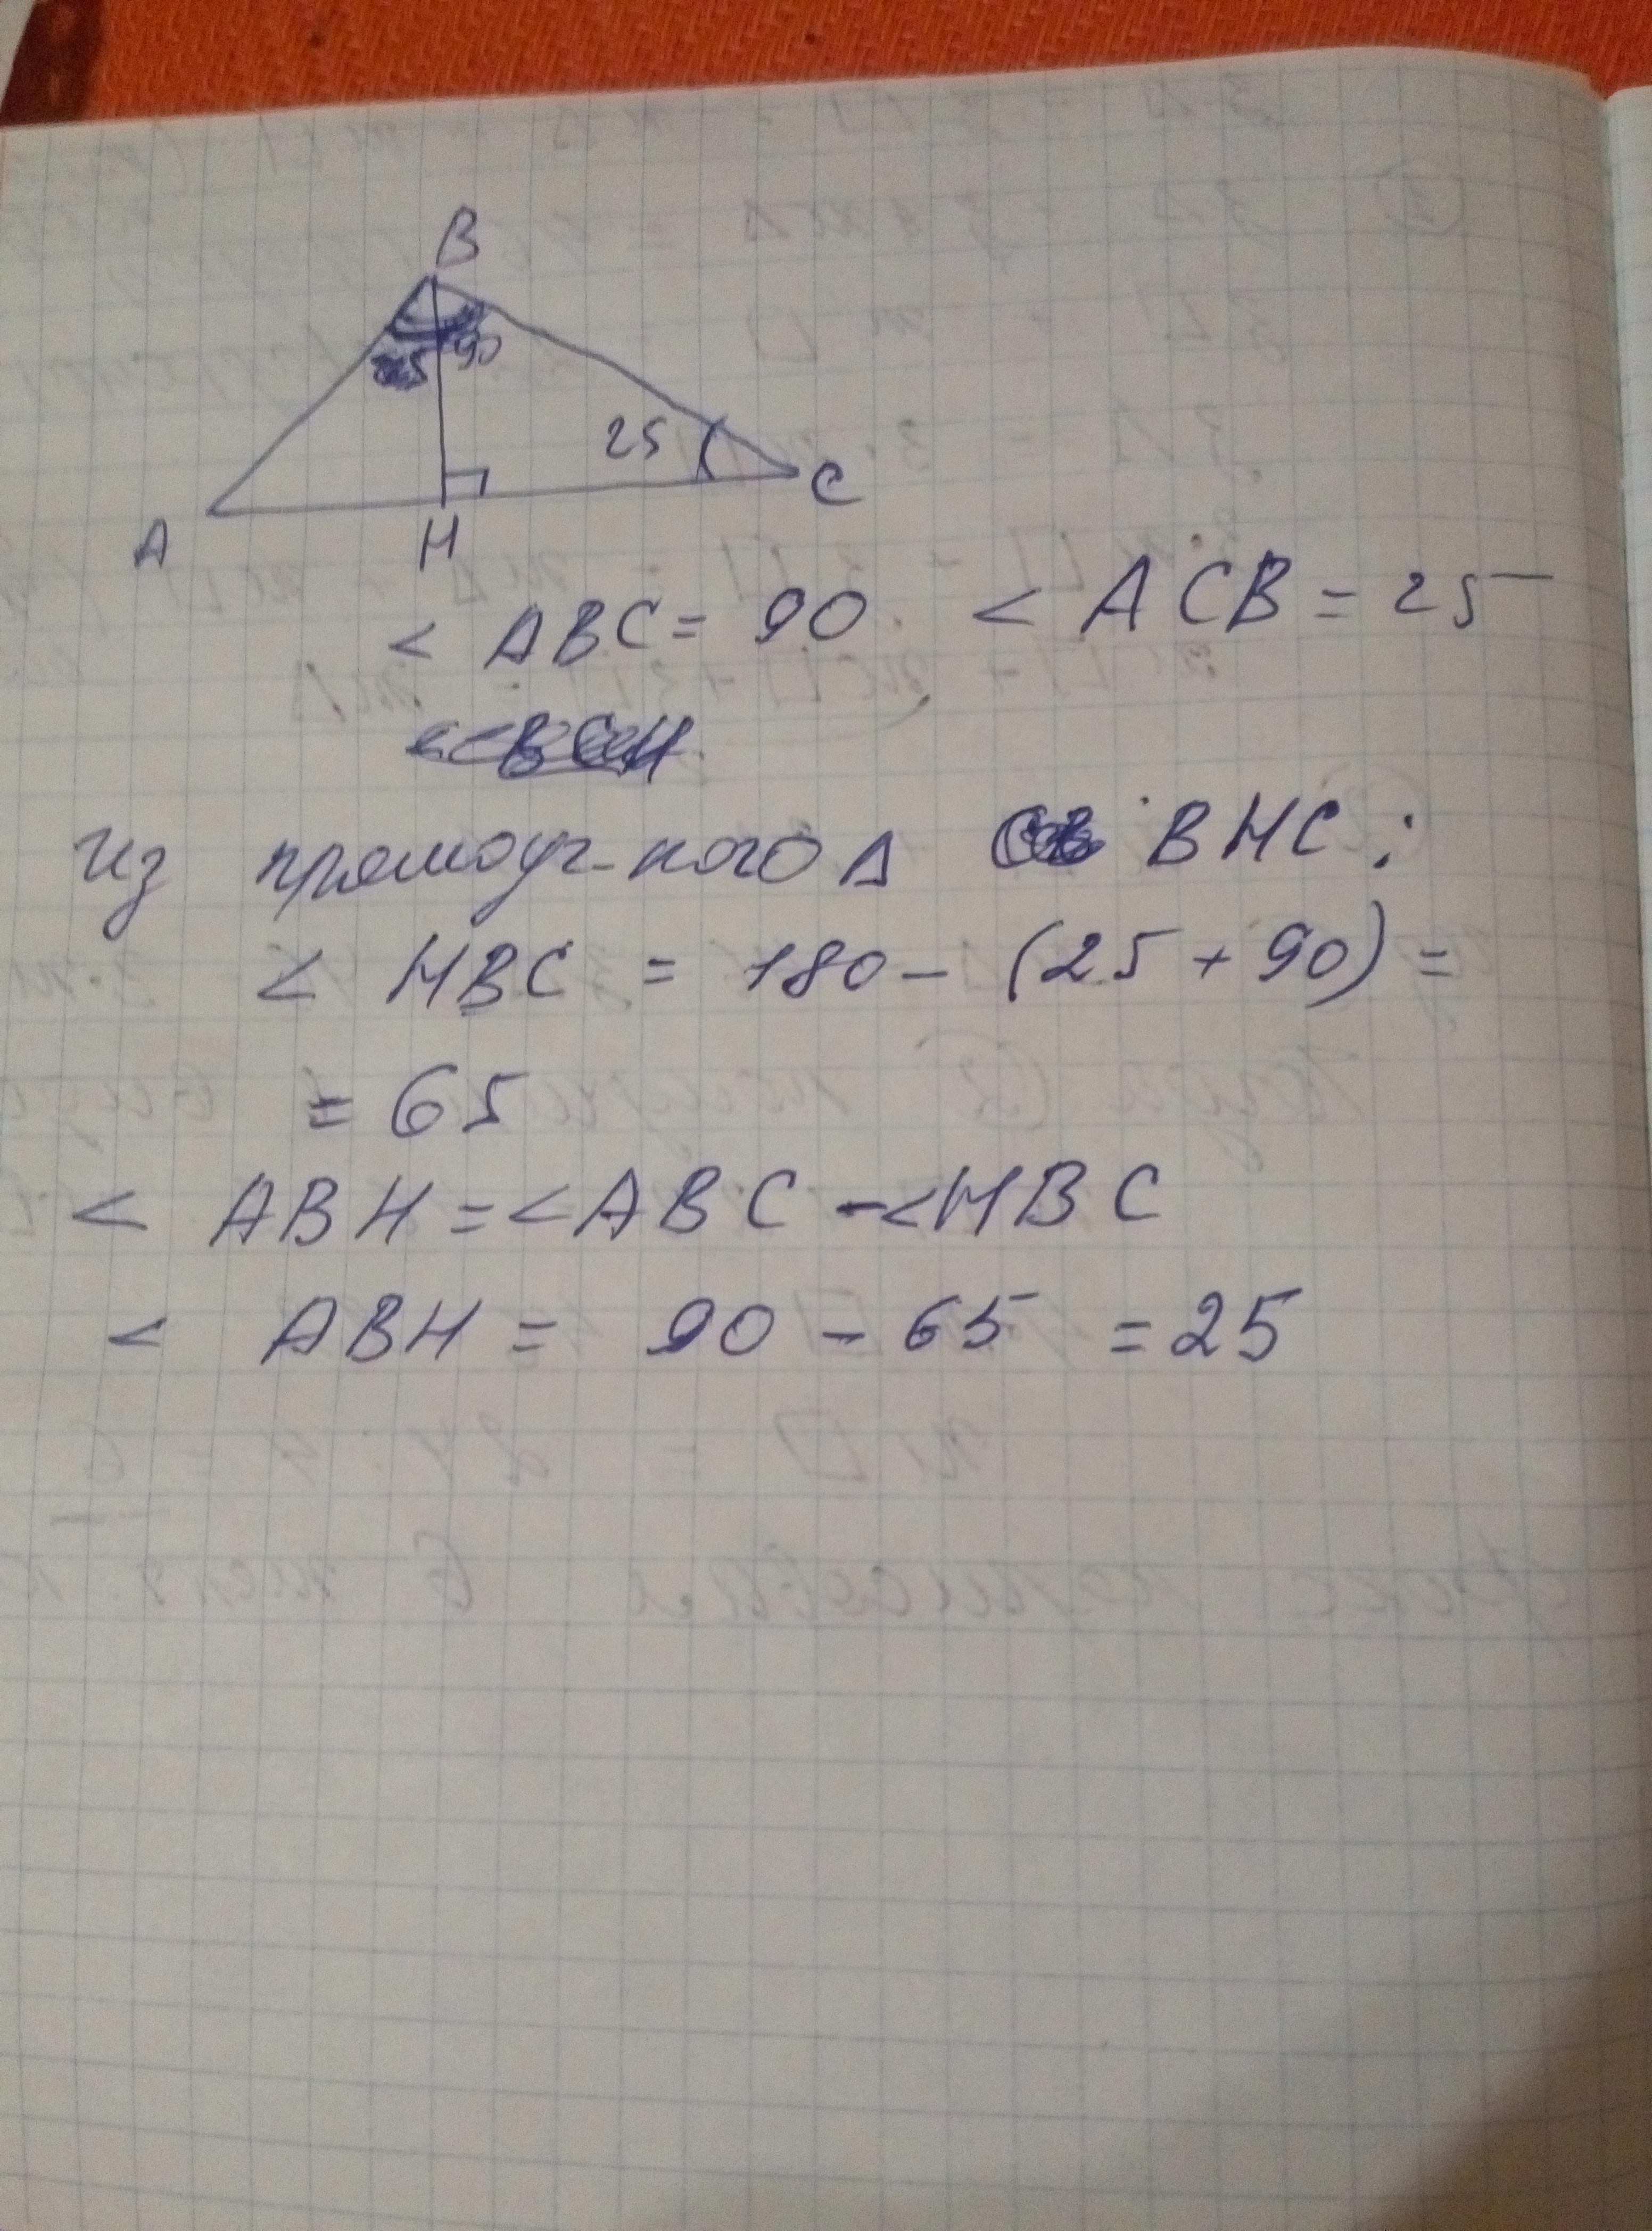 B
90
25
A
H
C
< ABC = 90 < ACB = 25
Из прямоуг-ного Δ BHC:
< HBC = 180 - (25 + 90) =
= 65
< ABH = < ABC - < HBC
< ABH = 90 - 65 = 25